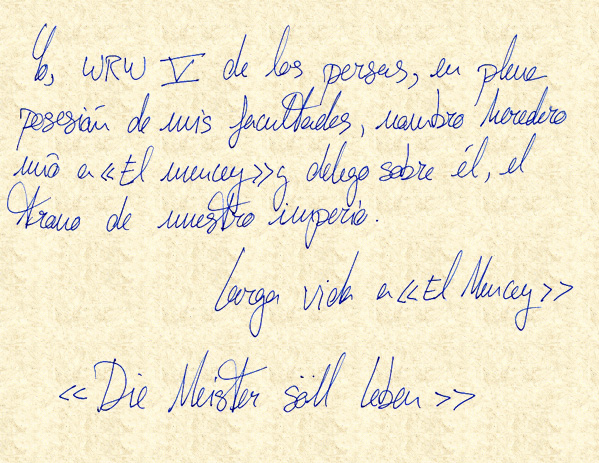 Yo, WRW V de los persas, en plena
posesión de mis facultades, nombro heredero
mío a «El mencey» y delego sobre él, el
trono de nuestro imperio.
Larga vida a «El Mencey»
«Die Meister söll leben»